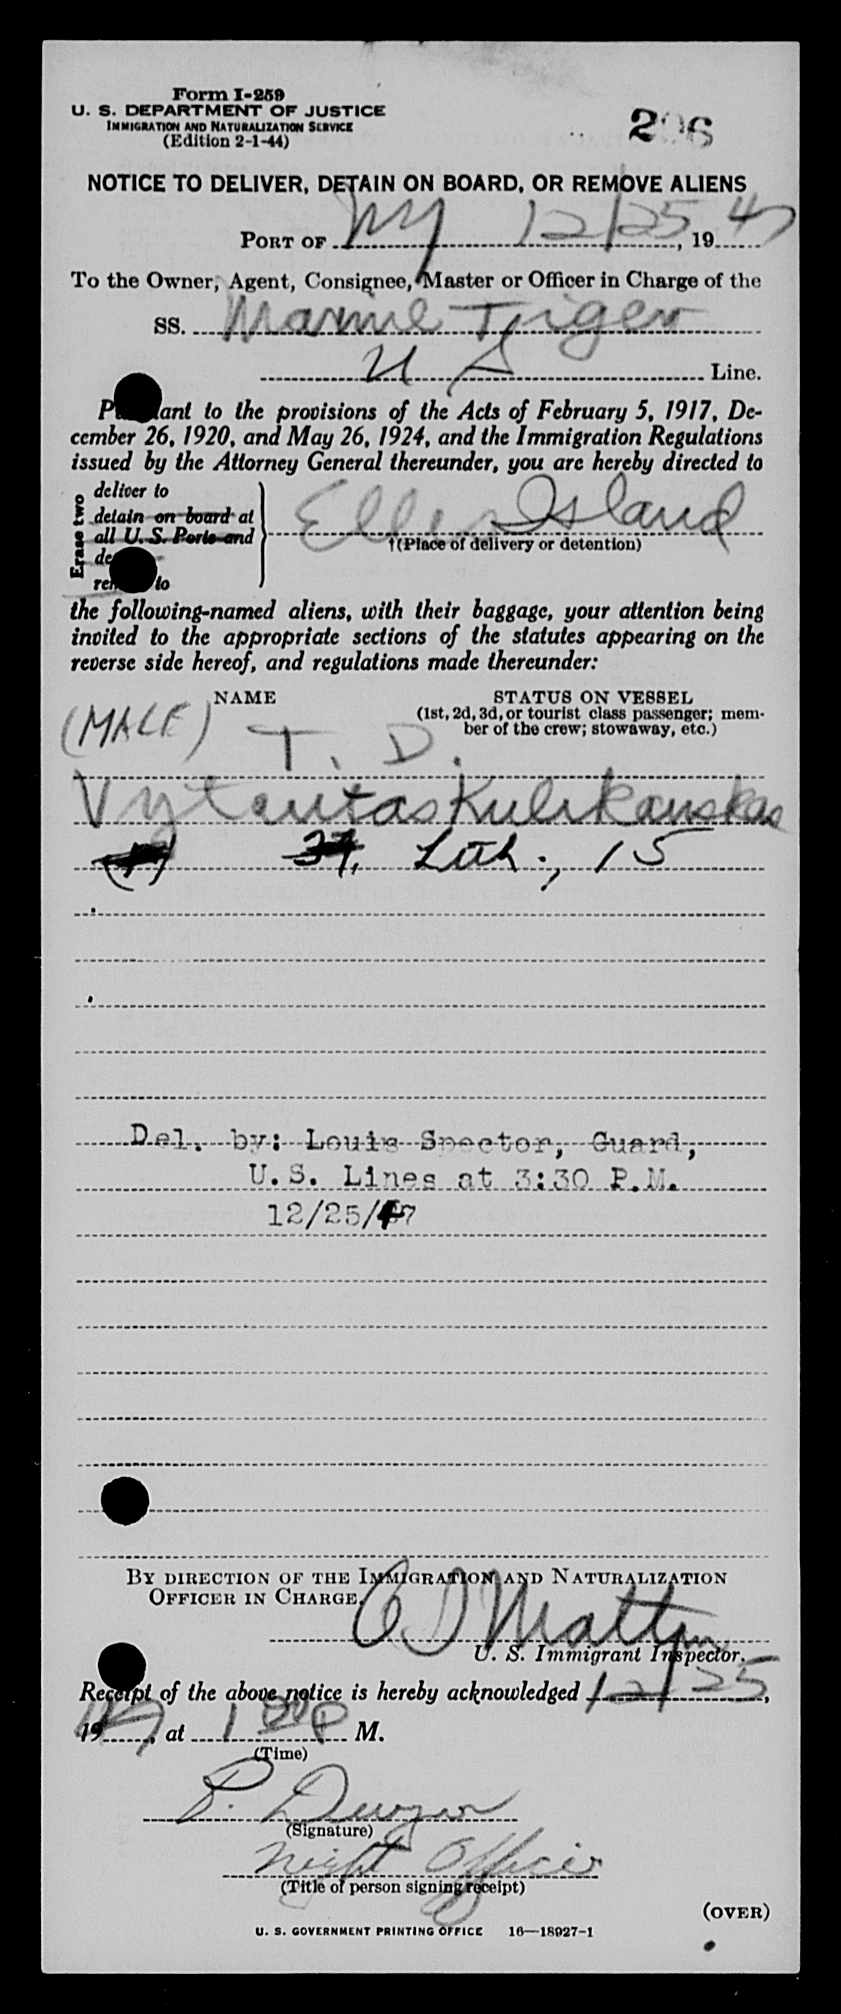 Form I-259
U. S. DEPARTMENT OF JUSTICE
IMMIGRATION AND NATURALIZATION SERVICE
(Edition 2-1-44)
296
NOTICE TO DELIVER, DETAIN ON BOARD, OR REMOVE ALIENS
PORT OF NY 12/25, 1947
To the Owner, Agent, Consignee, Master or Officer in Charge of the
SS. Marine Tiger
U S Line.
Pursuant to the provisions of the Acts of February 5, 1917, De-
cember 26, 1920, and May 26, 1924, and the Immigration Regulations
issued by the Attorney General thereunder, you are hereby directed to
Erase two
deliver to
detain on board at
all U. S. Ports and
Ellis Island
†(Place of delivery or detention)
to
the following-named aliens, with their baggage, your attention being
invited to the appropriate sections of the statutes appearing on the
reverse side hereof, and regulations made thereunder:
NAME
STATUS ON VESSEL
(1st, 2d, 3d, or tourist class passenger; mem-
ber of the crew; stowaway, etc.)
(MALE) T. D.
Vytautas Kulikauskas
Lith., 15
Del. by: Louis Spector, Guard,
U.S. Lines at 3:30 P.M.
12/25/47
BY DIRECTION OF THE IMMIGRATION AND NATURALIZATION
OFFICER IN CHARGE.
U. S. Immigrant Inspector.
Receipt of the above notice is hereby acknowledged 12/25,
1947, at 1 00 P M.
(Time)
P. Dwyer
(Signature)
Night Officer
(Title of person signing receipt)
(OVER)
U. S. GOVERNMENT PRINTING OFFICE 16—18927-1